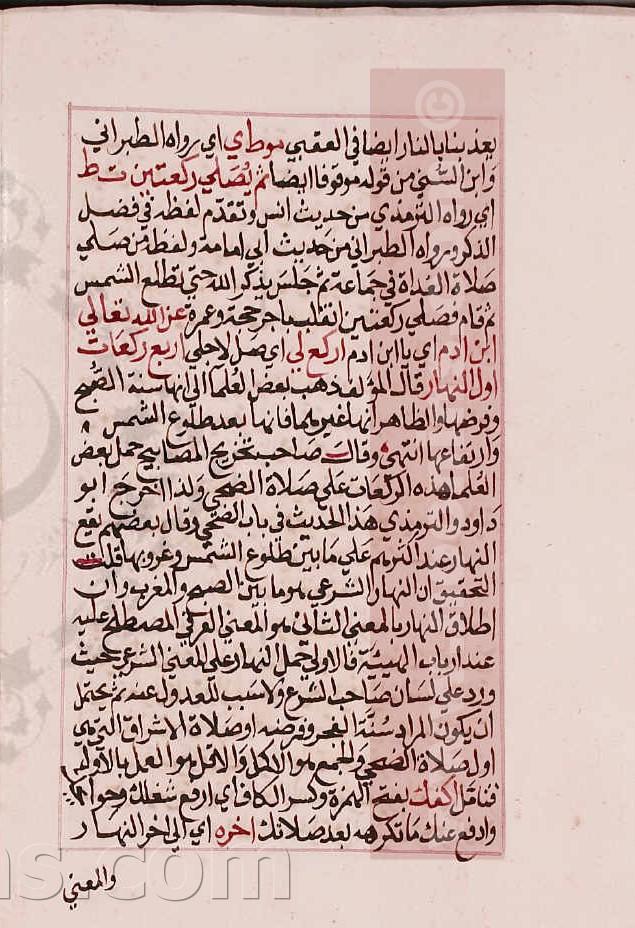 يعذبنا بالنار ايضا في العقبي موطي اي رواه الطبراني
وابن السني من قوله موقوفا ايضا ثم يصلي ركعتين ت ط
اي رواه الترمذي من حديث انس وتقدم لفظه في فضل
الذكر ورواه الطبراني من حديث ابي امامة ولفظه من صلي
صلاة الغداة في جماعة ثم جلس يذكر الله حتي تطلع الشمس
ثم قام فصلي ركعتين انقلب باجر حجة وعمرة عن الله تعالي
ابن ادم اي يا ابن ادم اركع لي اي صل لاجلي اربع ركعات
اول النهار قال المؤلف ذهب بعض العلما الي انها سنة الصبح
وفرضها والظاهر انها غيرهما فانها بعد طلوع الشمس
وارتفاعها انتهي وقال صاحب تخريج المصابيح حمل بعض
العلما هذه الركعات علي صلاة الضحي ولذا اخرج ابو
داود والترمذي هذا الحديث في باب الضحي وقال بعضهم يقع
النهار عند اكثرهم علي ما بين طلوع الشمس وغروبها قلت
التحقيق ان النهار الشرعي هو ما بين الصبح والمغرب وان
اطلاق النهار بالمعني الثاني هو المعني العرفي المصطلح عليه
عند ارباب الهيئية فالاولي حمل النهار علي المعني الشرعي حيث
ورد علي لسان صاحب الشرع ولا سبب للعدول عنه ثم يحتمل
ان يكون المراد سنة الفجر وفرضه او صلاة الاشراق التي هي
اول صلاة الضحي والجمع هو الاكمل والاقل هو العمل بالاول
اكفك بفتح الهمزة وكسر الكاف اي ارفع شغلك وحوا
وادفع عنك ما تكرهه بعد صلاتك اخره اي الي اخر النهار
والمعني
ns.com